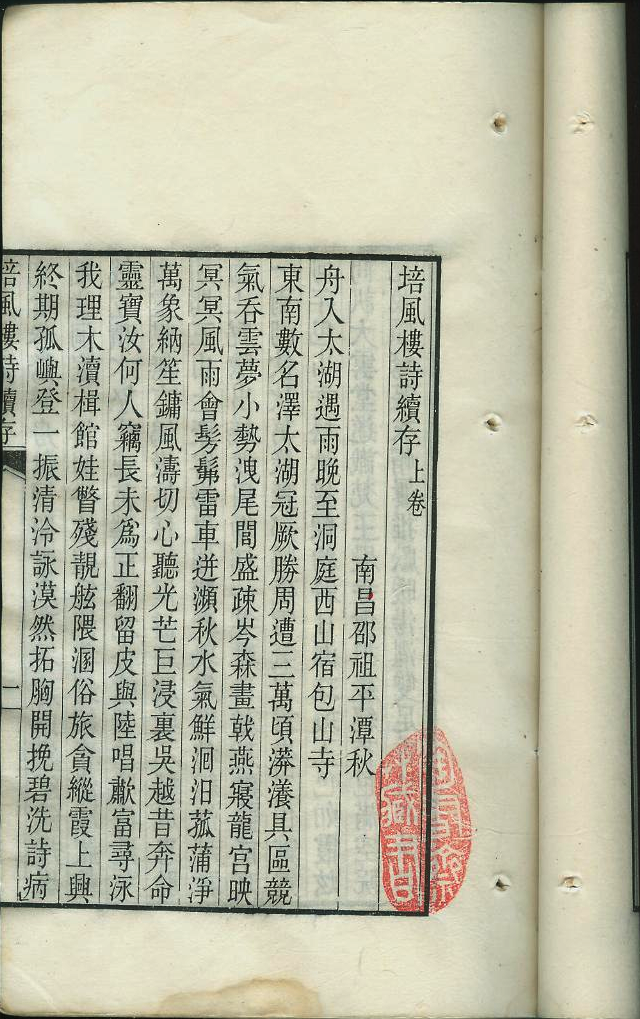 培風樓詩續存上卷
南昌邵祖平潭秋
舟入太湖遇雨晚至洞庭西山宿包山寺
東南數名澤太湖冠厥勝周遭三萬頃漭瀁具區競
氣吞雲夢小勢洩尾閭盛疎岑森畫戟燕寢龍宮映
冥冥風雨會髣髴雷車迸瀕秋水氣鮮洄汨菰蒲淨
萬象納笙鏞風濤切心聽光芒巨浸裏吳越昔奔命
靈寶汝何人竊長未爲正翻留皮與陸唱歗富尋泳
我理木瀆楫館娃瞥殘靚舷隈溷俗旅貪縱霞上興
終期孤嶼登一振清泠詠漠然拓胸開挽碧洗詩病
培風樓詩續存
一